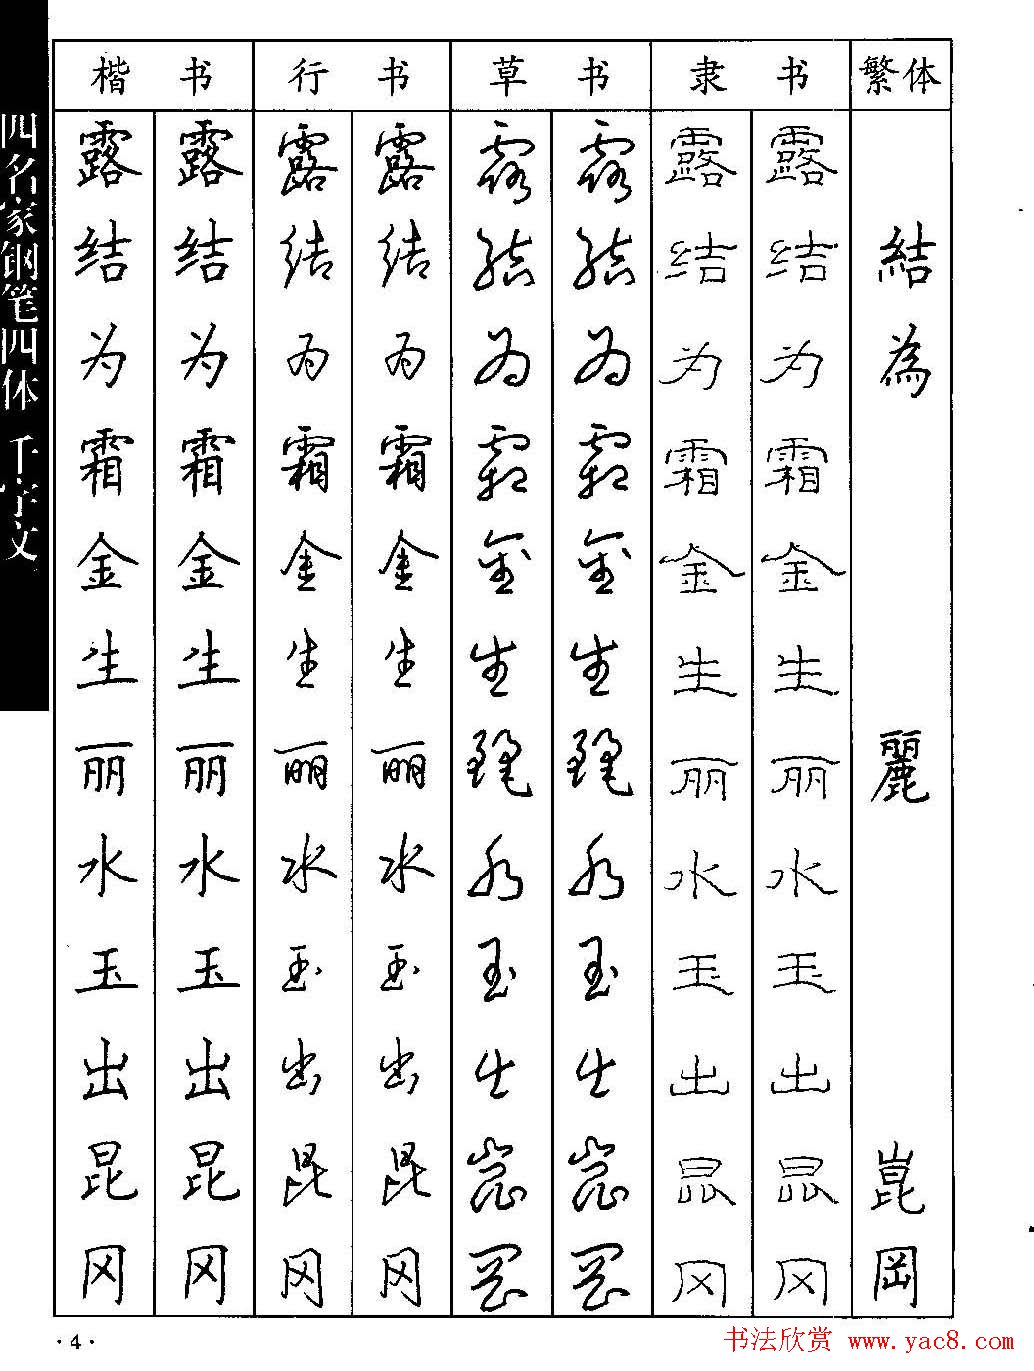 四名家钢笔四体 千字文
楷 书 行 书 草 书 隶 书 繁体
露 露 露 露 露 露 露 露
结 结 结 结 结 结 结 结 結
为 为 为 为 为 为 为 为 為
霜 霜 霜 霜 霜 霜 霜 霜
金 金 金 金 金 金 金 金
生 生 生 生 生 生 生 生
丽 丽 丽 丽 丽 丽 丽 丽 麗
水 水 水 水 水 水 水 水
玉 玉 玉 玉 玉 玉 玉 玉
出 出 出 出 出 出 出 出
昆 昆 昆 昆 崑 崑 昆 昆 崑
冈 冈 冈 冈 岡 岡 冈 冈 岡
·4·
书法欣赏 www.yac8.com